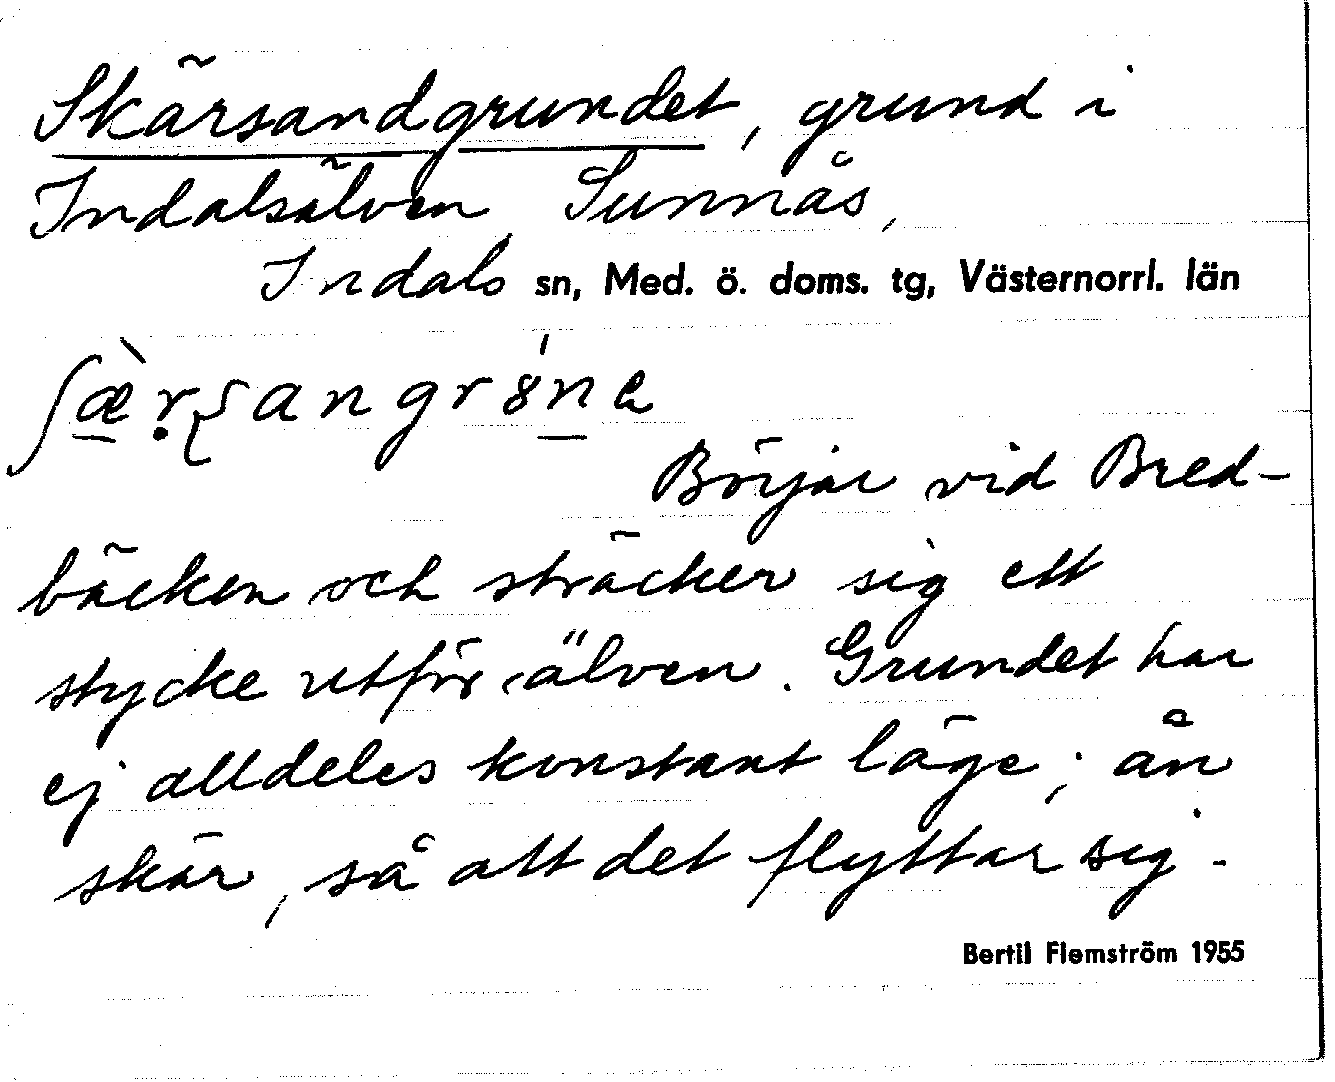 Skärsandgrundet, grund i
Indalsälven Sunnås,
Indals sn, Med. ö. doms. tg, Västernorrl. län
Börjar vid Bred-
bäcken och sträcker sig ett
stycke utför älven. Grundet har
ej alldeles konstant läge; ån
skär, så att det flyttar sig.
Bertil Flemström 1955